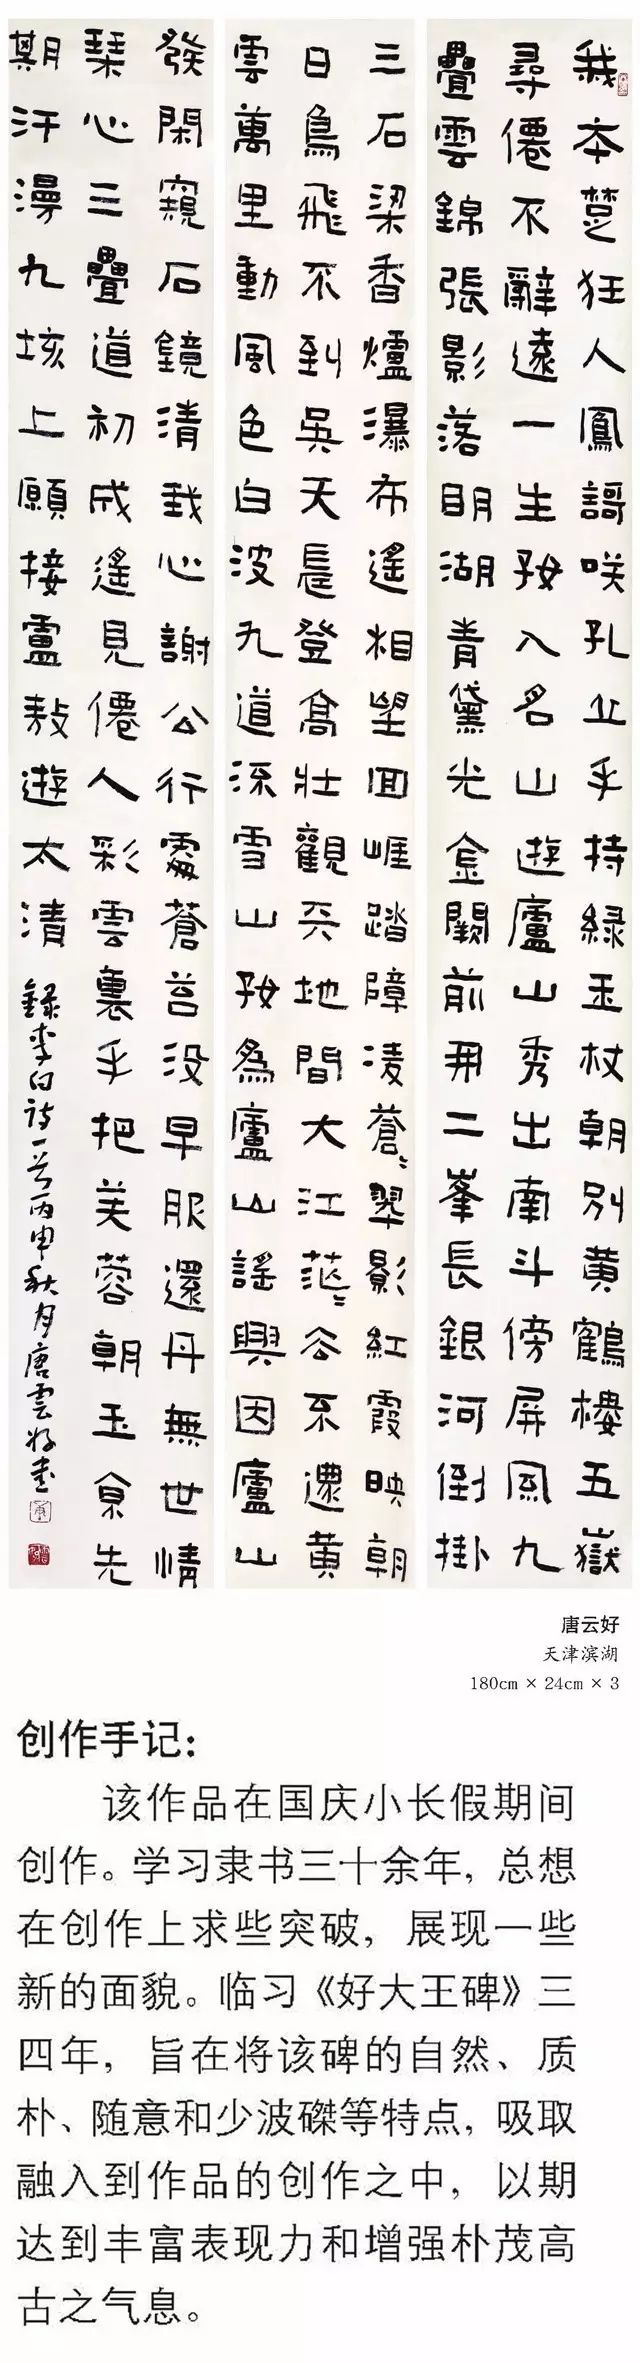 我本楚狂人鳳謌咲孔丘手持緑玉杖朝別黄鶴樓五嶽
尋僊不辭遠一生好入名山遊廬山秀出南斗傍屏風九
疊雲錦張影落明湖青黛光金闕前開二峯長銀河倒掛
三石梁香爐瀑布遥相望回崕踏障凌蒼〻翠影紅霞映朝
日鳥飛不到吳天長登高壯觀天地間大江茫〻去不還黄
雲萬里動風色白波九道流雪山好為廬山謡興因廬山
發閑窺石鏡清我心謝公行處蒼苔没早服還丹無世情
琹心三疊道初成遥見僊人彩雲裏手把芙蓉朝玉京先
期汗漫九垓上願接盧敖遊太清
録李白诗一首丙申秋月唐雲好書
唐云好
天津滨湖
180cm × 24cm × 3
创作手记：
该作品在国庆小长假期间
创作。学习隶书三十余年，总想
在创作上求些突破，展现一些
新的面貌。临习《好大王碑》三
四年，旨在将该碑的自然、质
朴、随意和少波磔等特点，吸取
融入到作品的创作之中，以期
达到丰富表现力和增强朴茂高
古之气息。